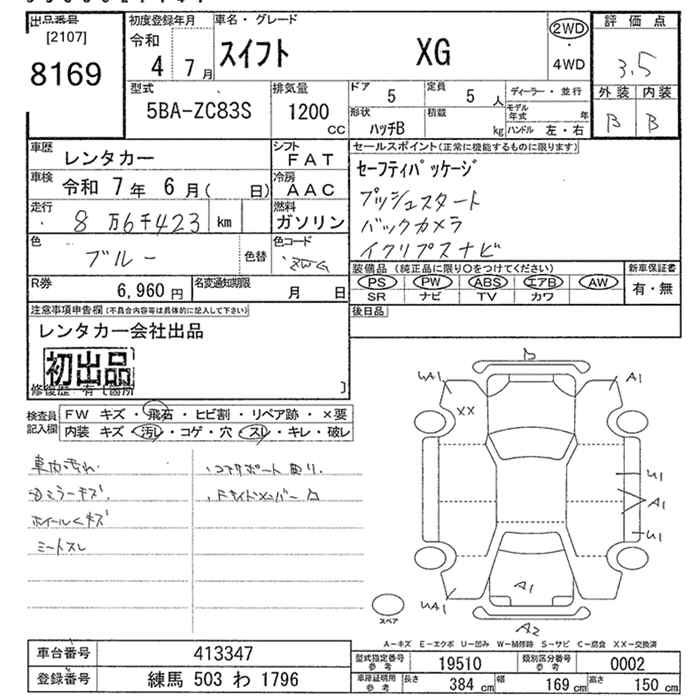 出品番号
[2107]
8169
初度登録年月
令和
4 7月
車名・グレード
スイフト XG
2WD
・
4WD
評価点
3.5
外装 内装
B B
型式
5BA-ZC83S
排気量
1200
CC
ドア
5
定員
5 人
形状
ハッチB
積載
kg
ディーラー・並行
モデル年式 年
ハンドル 左・右
車歴 レンタカー
シフト FAT
車検 令和 7年 6月( 日)
冷房 AAC
走行 8万6千423 km
燃料 ガソリン
色 ブルー 色替
色コード ZWG
R券 6,960円
名変通知期限 月 日
セールスポイント(正常に機能するものに限ります)
セーフティパッケージ
プッシュスタート
バックカメラ
イクリプスナビ
装備品 (純正品に限り○をつけてください)
PS PW ABS エアB AW
SR ナビ TV カワ
新車保証書
有・無
後日品
注意事項申告欄 (不具合内容等は具体的に記入して下さい)
レンタカー会社出品
初出品
修復歴 有 (箇所 )
検査員記入欄
FW キズ・飛石・ヒビ割・リペア跡・×要
内装 キズ・汚レ・コゲ・穴・スレ・キレ・破レ
車内汚れ
ミラーキズ
ホイールキズ
シートスレ
コアサポート
Fサイドメンバー
UA1
A1
XX
U1
A1
U1
A1
UA1
A2
スペア
A-キズ E-エクボ U-凹み W-補修跡 S-サビ C-腐食 XX-交換済
車台番号 413347
登録番号 練馬 503 わ 1796
型式指定番号 参考 19510
類別区分番号 参考 0002
車庫証明用 参考 長さ 384 cm 幅 169 cm 高さ 150 cm